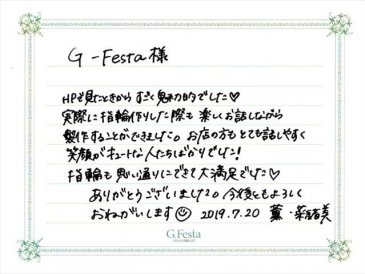 G-Festa 様
HPを見たときから すごく魅力的でした♡
実際に指輪作りした際も 楽しくお話しながら
製作することができました。お店の方も とても話しやすく
笑顔がキュートな人たちばかりでした!
指輪も思い通りにできて大満足でした♡
ありがとうございました。今後ともよろしく
おねがいします☺ 2019.7.20 薫・菜緒美
G.Festa